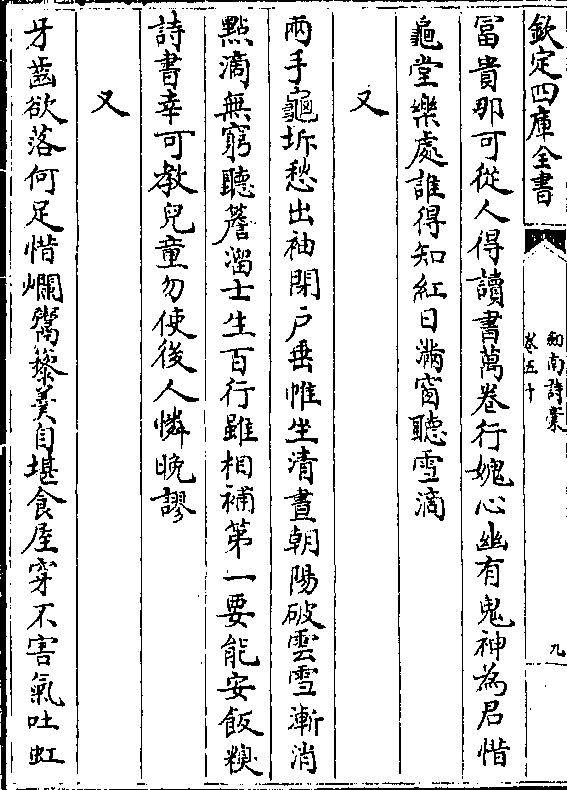 欽定四庫全書
劍南詩稾
卷五十
九
富貴那可從人得讀書萬卷行媿心幽有鬼神為君惜
龜堂樂處誰得知紅日滿窗聽雪滴
又
兩手龜坼愁出袖閉户垂帷坐清晝朝陽破雲雪漸消
㸃滴無窮聽簷溜士生百行雖相補第一要能安飯糗
詩書幸可教兒童勿使後人憐晚謬
又
牙齒欲落何足惜爛鬻藜羮自堪食屋穿不害氣吐虹